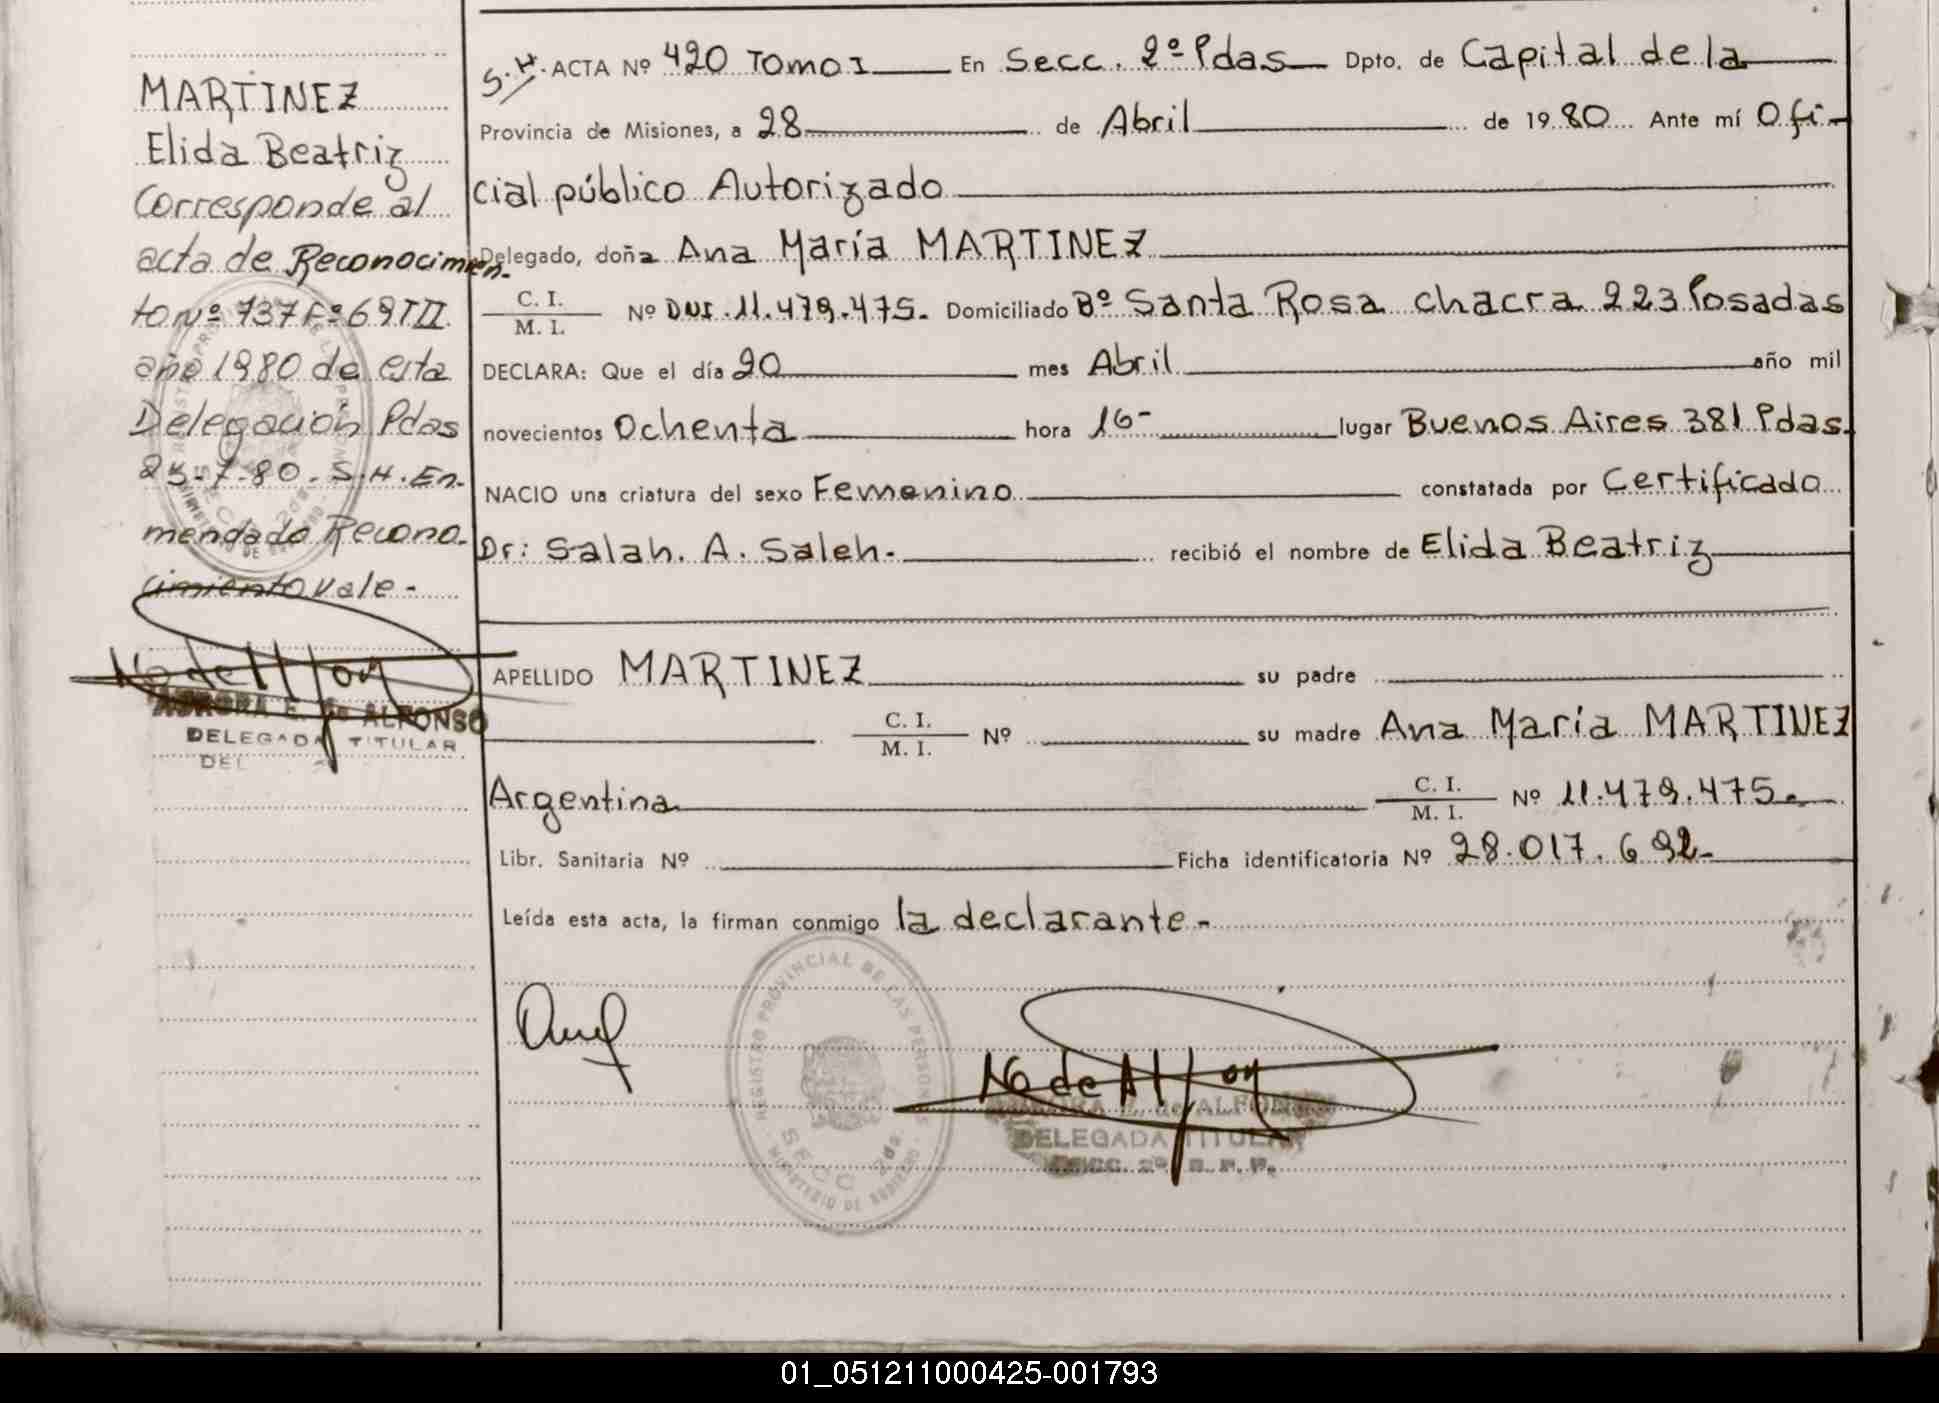 MARTINEZ
Elida Beatriz
Corresponde al
acta de Reconocimien-
to Nº 737 Fº 69 T II
año 1980 de esta
Delegación Pdas
23-7-80. S.H. En-
mendado Recono-
cimiento vale-
AURORA E. de ALFONSO
DELEGADA TITULAR
DEL
S.H. ACTA Nº 420 Tomo I En Secc. 2º Pdas Dpto. de Capital de la
Provincia de Misiones, a 28 de Abril de 1980 Ante mí Ofi-
cial público Autorizado
Delegado, doña Ana María MARTINEZ
C. I. / M. I. Nº DNI. 11.479.475. Domiciliado Bº Santa Rosa chacra 223 Posadas
DECLARA: Que el día 20 mes Abril año mil
novecientos Ochenta hora 16- lugar Buenos Aires 381 Pdas.
NACIO una criatura del sexo Femenino constatada por Certificado
Dr: Salah. A. Saleh. recibió el nombre de Elida Beatriz
APELLIDO MARTINEZ su padre
C. I. / M. I. Nº su madre Ana María MARTINEZ
Argentina C. I. / M. I. Nº 11.479.475.
Libr. Sanitaria Nº Ficha identificatoria Nº 28.017.692-
Leída esta acta, la firman conmigo la declarante.-
REGISTRO PROVINCIAL DE LAS PERSONAS
SECC 2da.
MINISTERIO DE GOBIERNO
AURORA E. de ALFONSO
DELEGADA TITULAR
SECC. 2º R. P. P.
01_051211000425-001793